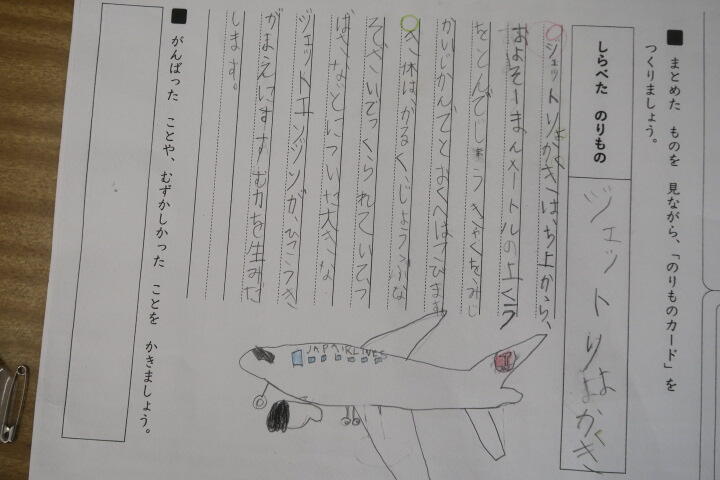 ■ まとめた ものを 見ながら、「のりものカード」を
つくりましょう。
しらべた のりもの
ジェットりょかくき
ジェットりょかくきは、ち上から、
およそ一まんメートルの上くう
をとんでじょうきゃくをみじ
かいじかんでとおくへはこびます
き体は、かるくじょうぶな
そざいでつくられていてつ
ばさなどについた大きな
ジェットエンジンが、ひこうき
がまえにすすむ力を生みだ
します。
■ がんばった ことや、むずかしかった ことを かきましょう。
JAPAIRLINES